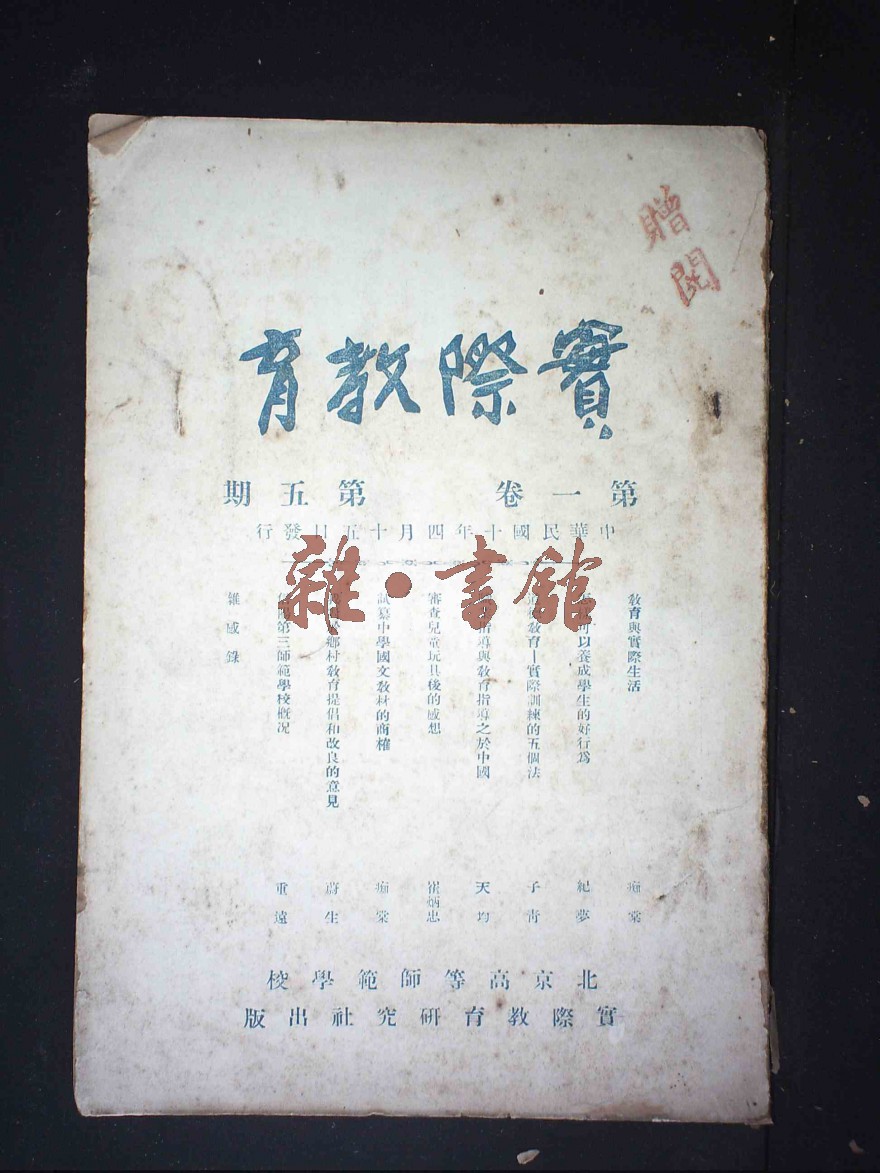 贈閱
實際教育
第一卷 第五期
中華民國十年四月十五日發行
雜·書館
教育與實際生活 痴棠
可以養成學生的好行爲 紀夢
教育—實際訓練的五個法 子青
指導與教育指導之於中國 天均
審查兒童玩具後的感想 崔炳忠
試纂中學國文教材的商榷 痴棠
鄉村教育提倡和改良的意見 蔚生
第三師範學校概况 重遠
雜感錄
北京高等師範學校
實際教育研究社出版